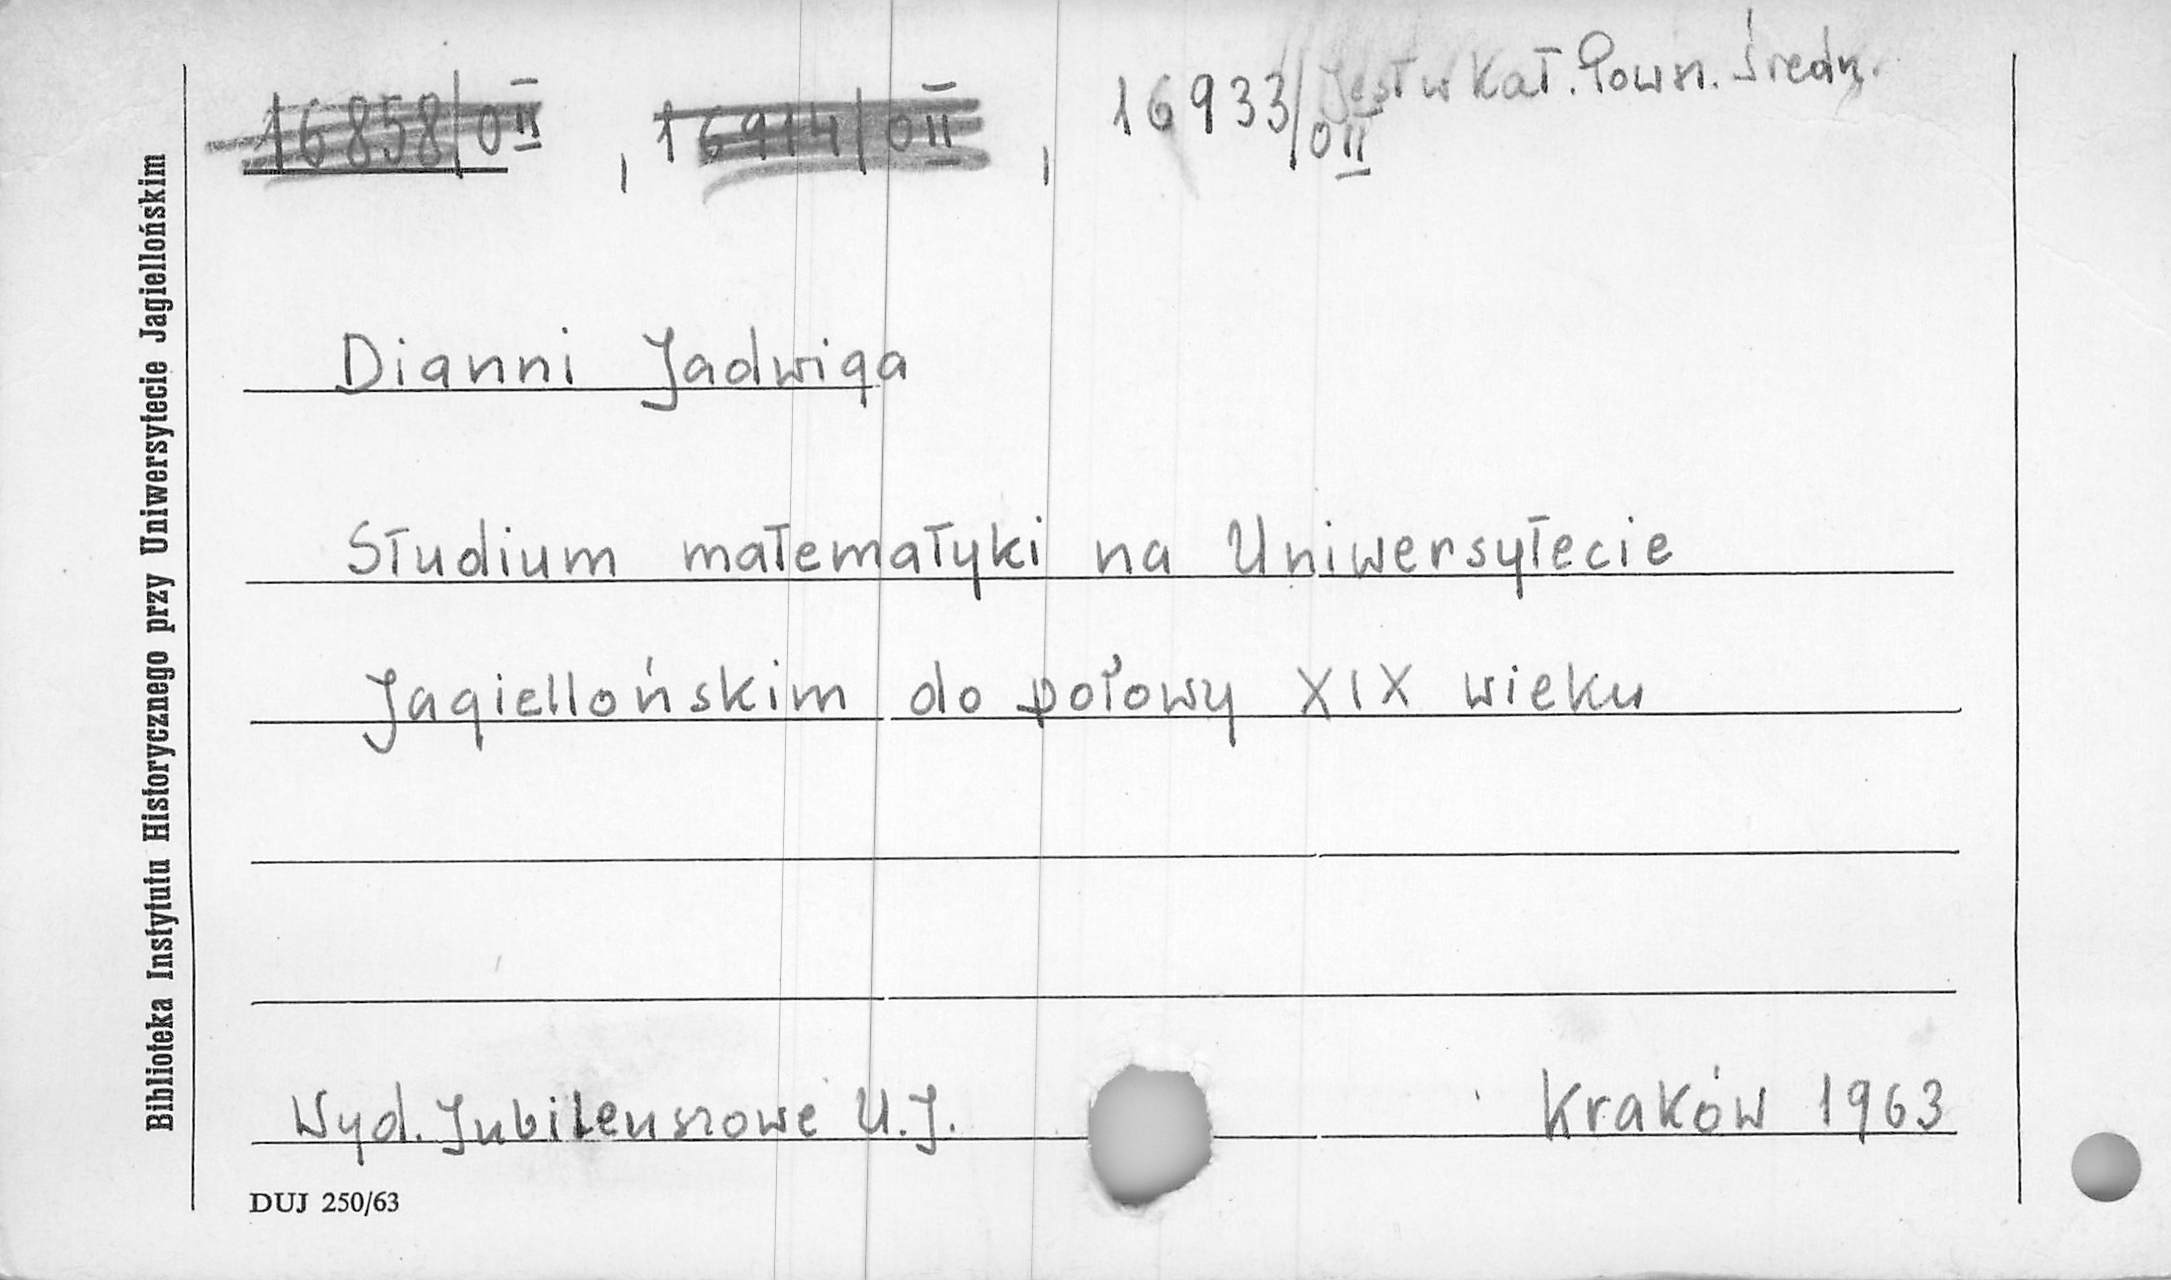 16858/0II , 16914/0II , 16933/0II Jest w Kat. Pown. Średn.
Dianni Jadwiga
Studium matematyki na Uniwersytecie
Jagiellońskim do połowy XIX wieku
Wyd. Jubileuszowe U.J. Kraków 1963
DUJ 250/63
Biblioteka Instytutu Historycznego przy Uniwersytecie Jagiellońskim